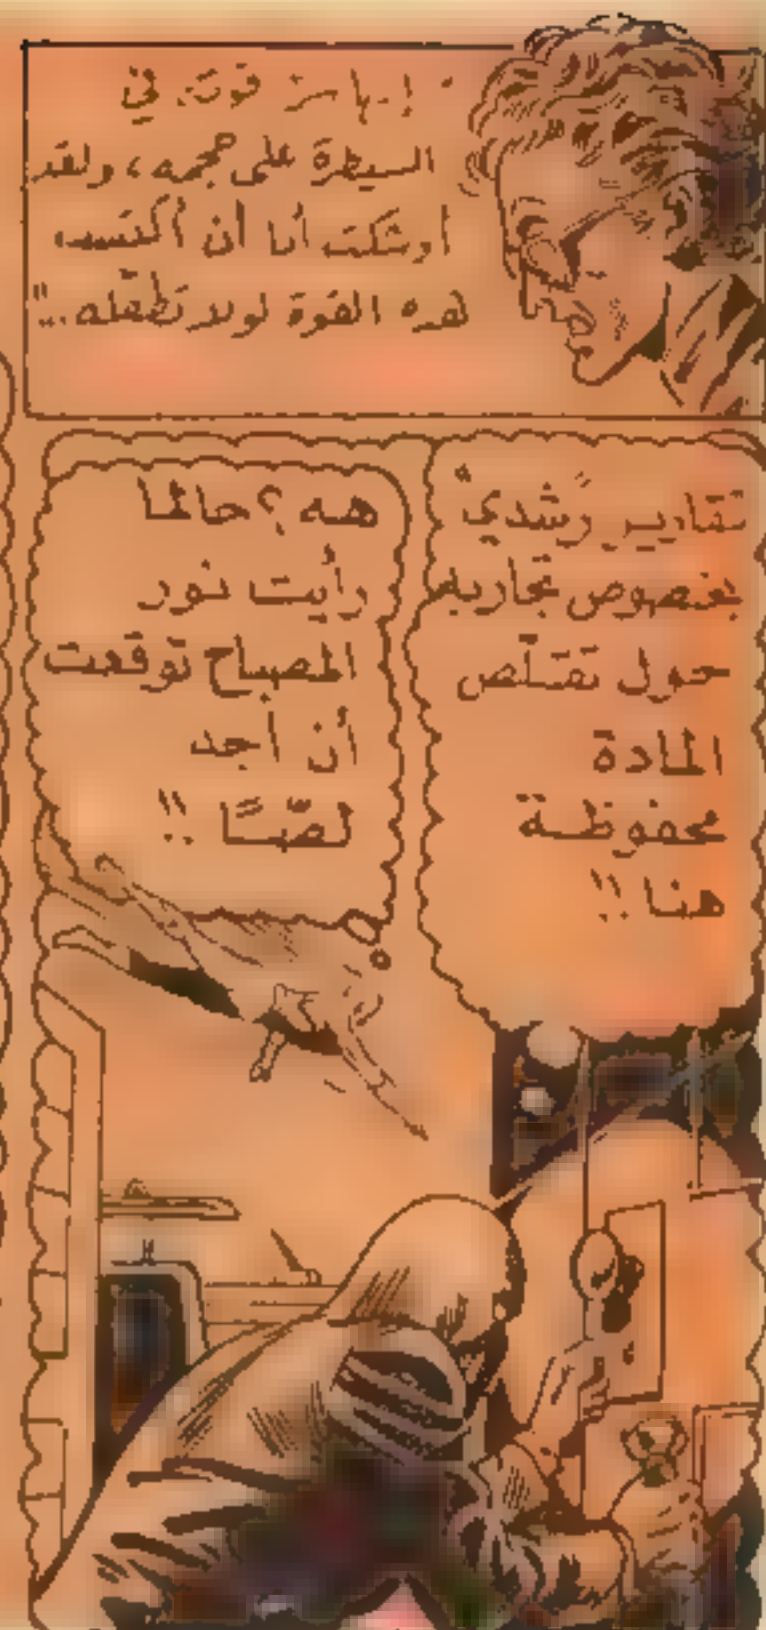 السيطرة على حجمه، ولقد
أوشكت أنا أن أكتسب
هذه القوة لولا تطفله .."
تقارير رُشدي
بخصوص تجاربه
حول تقلّص
المادة
محفوظة
هنا !!
هه ؟ حالما
رأيت نور
المصباح توقعت
أن أجد
لصًّا !!